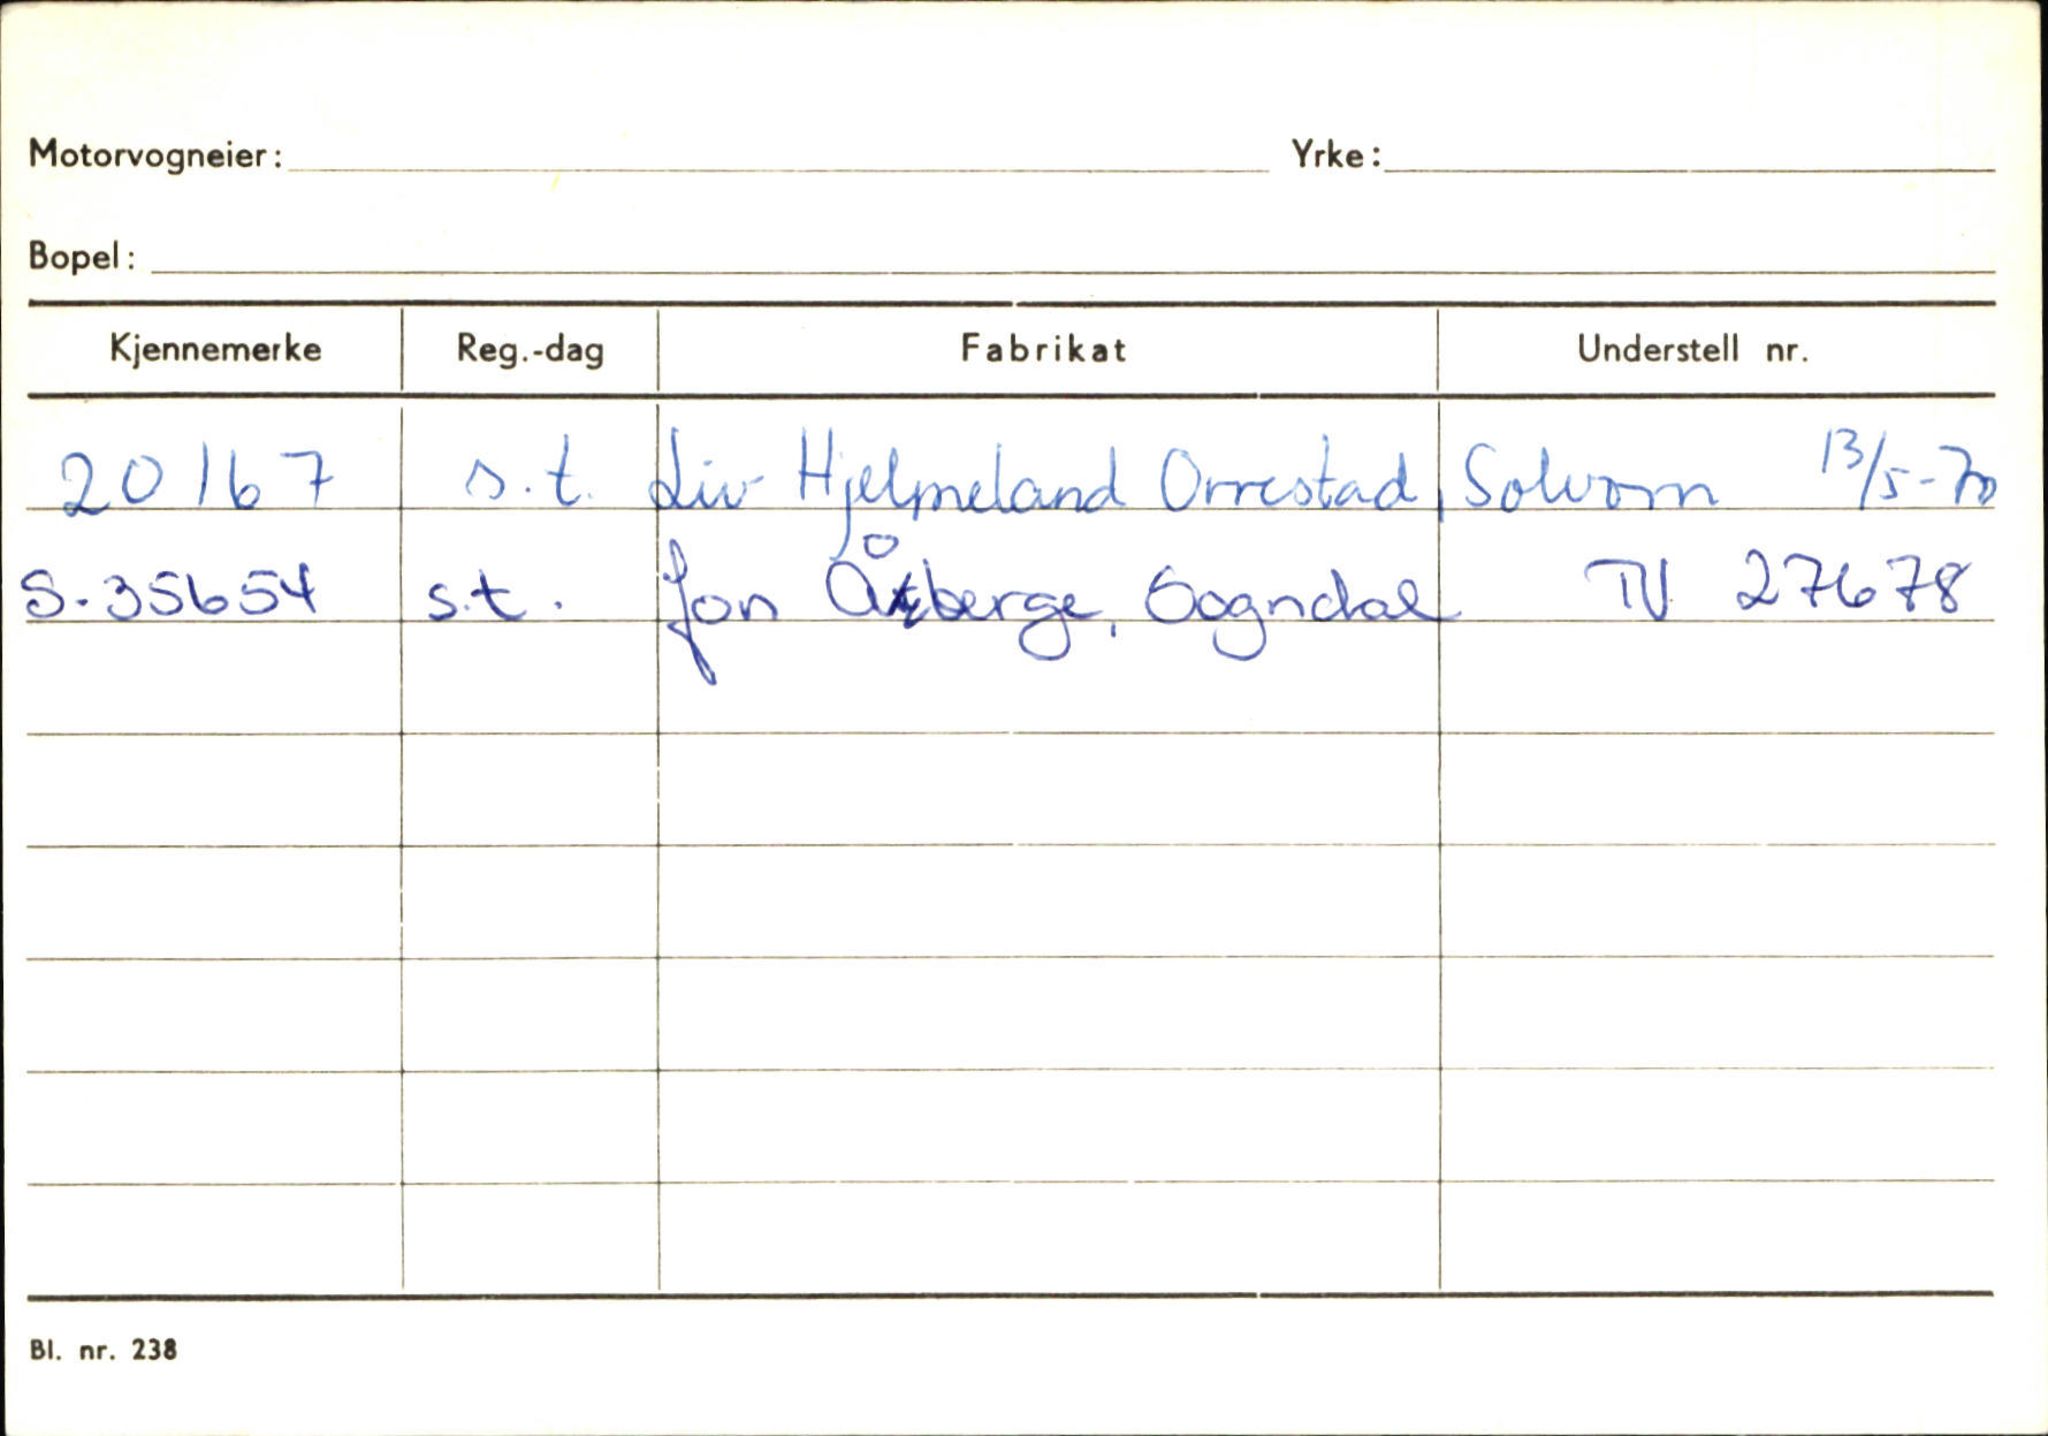 Motorvogneier: Yrke:
Bopel:
Kjennemerke Reg.-dag Fabrikat Understell nr.
20167 s.t. Liv Hjelmeland Orrestad, Solvorn 13/5-70
S-35654 s.t. Jon Åberge, Sogndal TV 27678
Bl. nr. 238